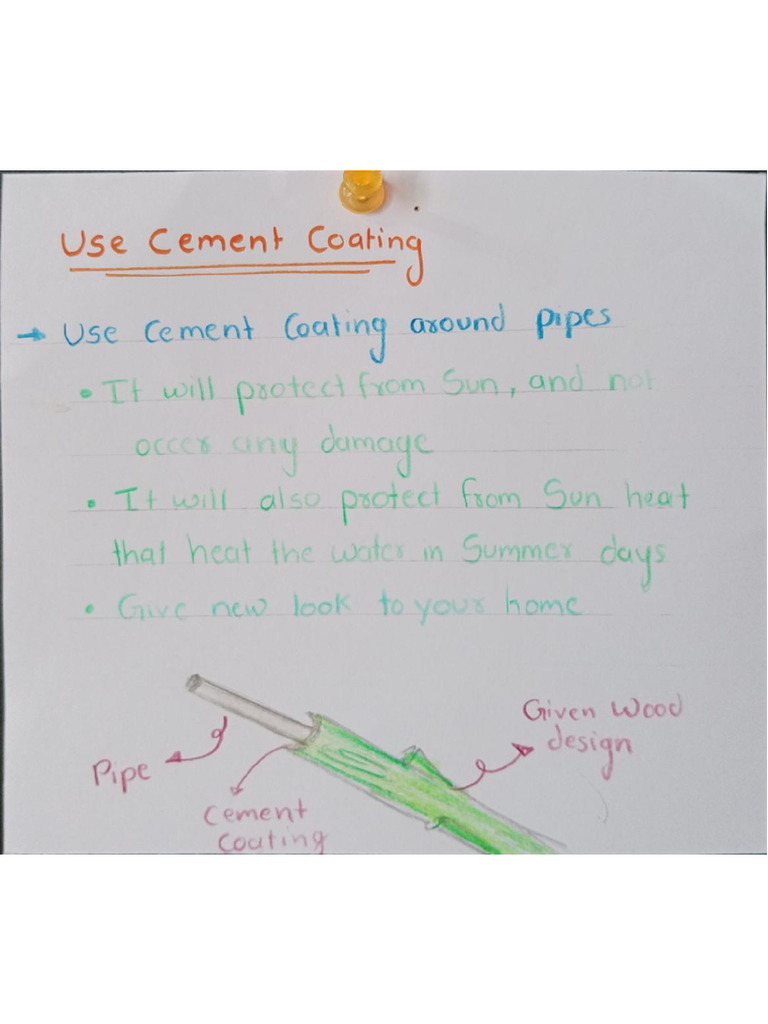 Use Cement Coating
→ Use Cement Coating around pipes
• It will protect from Sun, and not
occer any damage
• It will also protect from Sun heat
that heat the water in Summer days
• Give new look to your home
Given Wood
design
Pipe
Cement
Coating